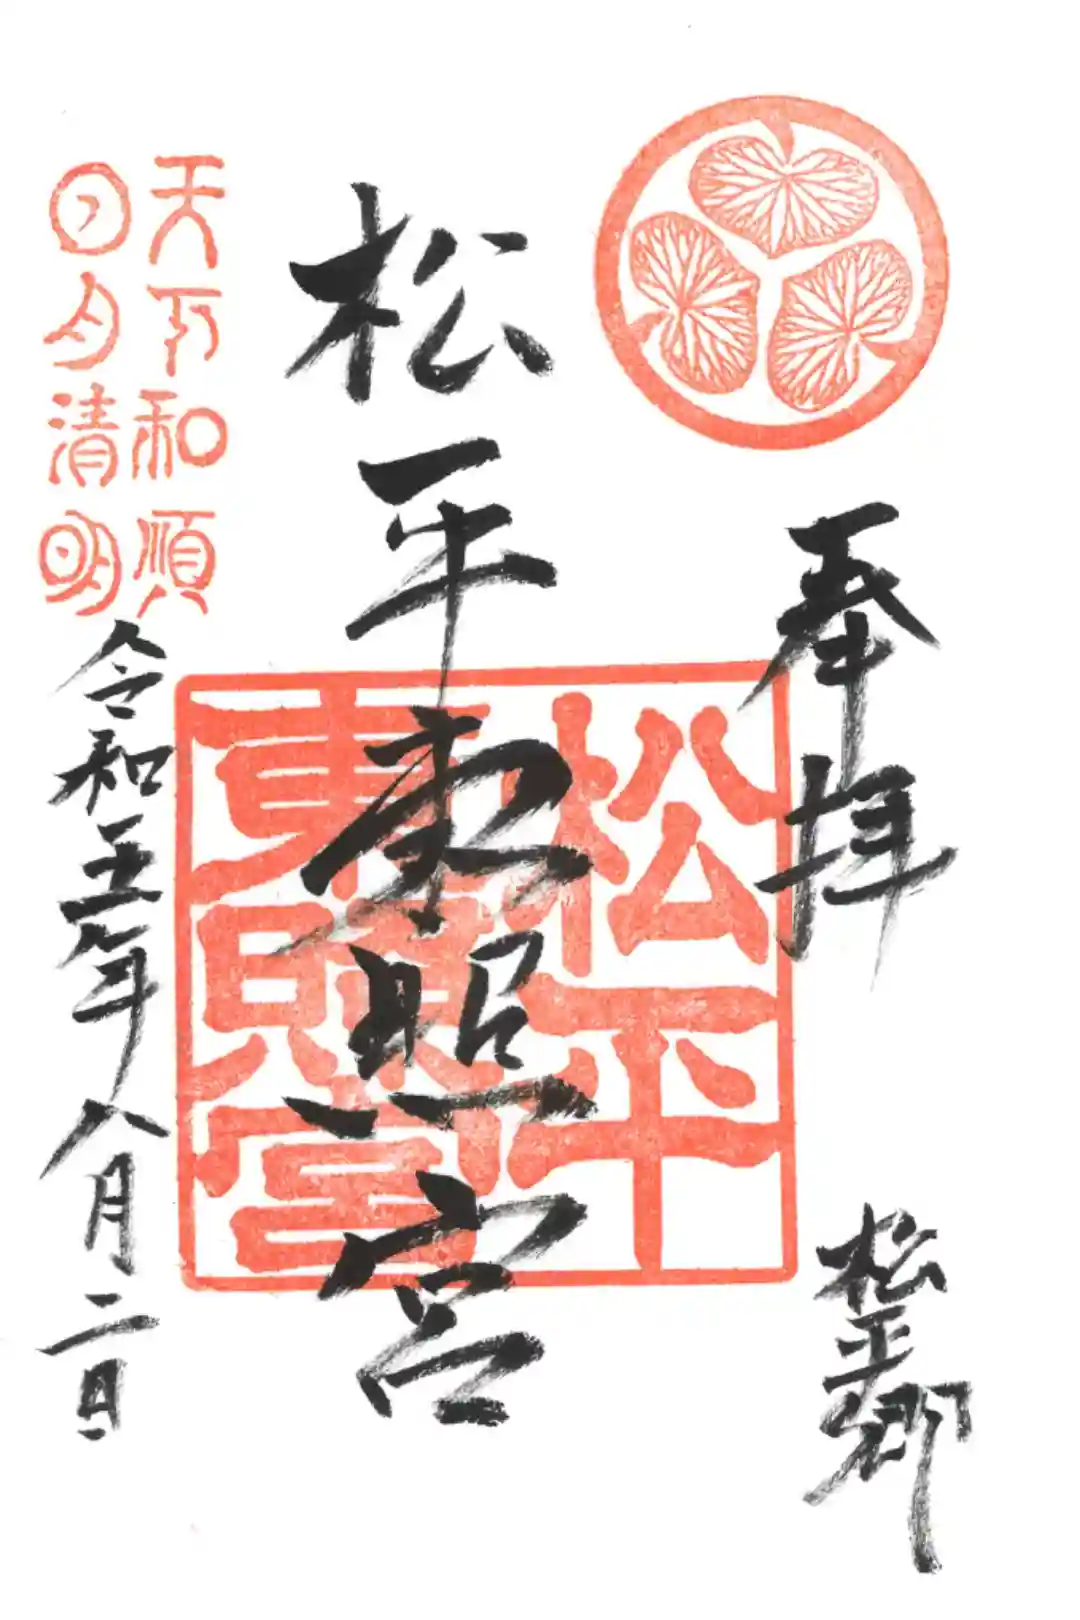 奉拝
松平郷
松平
東照宮
松平東照宮
天下和順
日月清明
令和五年八月二日